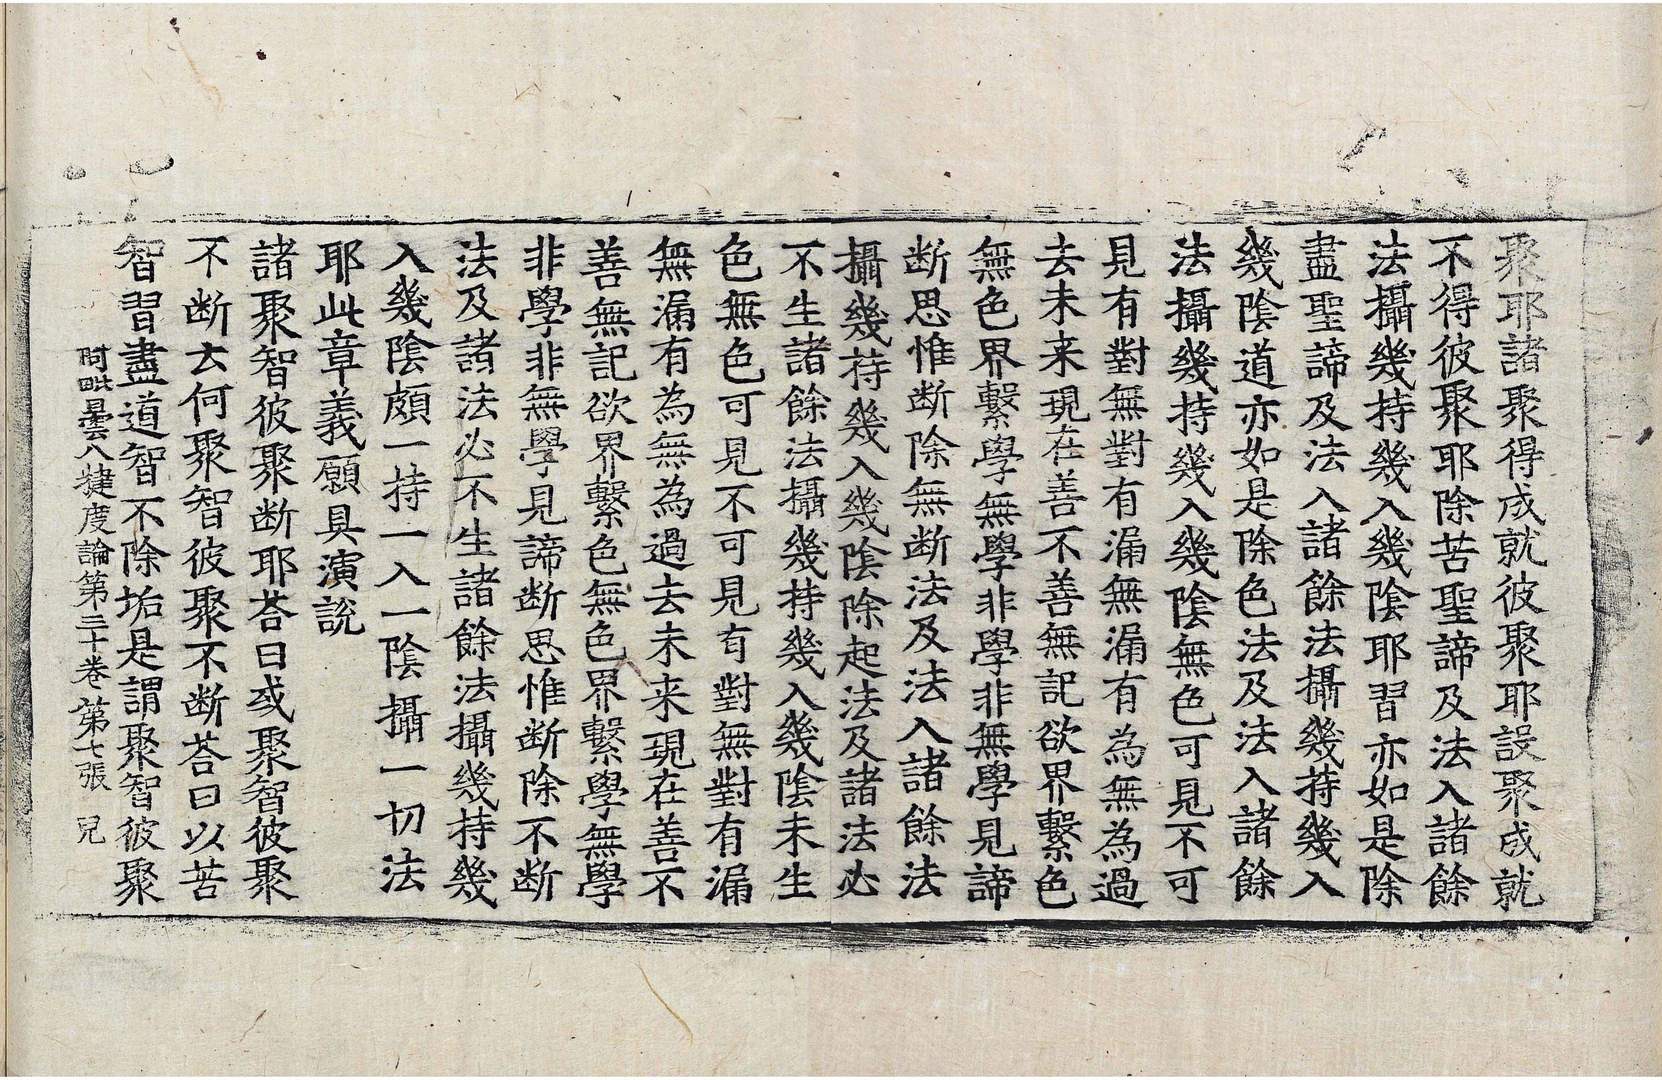 聚耶諸聚得成就彼聚耶設聚成就
不得彼聚耶除苦聖諦及法入諸餘
法攝幾持幾入幾陰耶習亦如是除
盡聖諦及法入諸餘法攝幾持幾入
幾陰道亦如是除色法及法入諸餘
法攝幾持幾入幾陰無色可見不可
見有對無對有漏無漏有為無為過
去未来現在善不善無記欲界繫色
無色界繫學無學非學非無學見諦
断思惟断除無断法及法入諸餘法
攝幾持幾入幾陰除起法及諸法必
不生諸餘法攝幾持幾入幾陰未生
色無色可見不可見有對無對有漏
無漏有為無為過去未来現在善不
善無記欲界繫色無色界繫學無學
非學非無學見諦断思惟断除不断
法及諸法必不生諸餘法攝幾持幾
入幾陰頗一持一入一陰攝一切法
耶此章義願具演説
諸聚智彼聚断耶荅曰或聚智彼聚
不断云何聚智彼聚不断荅曰以苦
智習盡道智不除垢是謂聚智彼聚
阿毗曇八犍度論第三十卷 第七張 兒